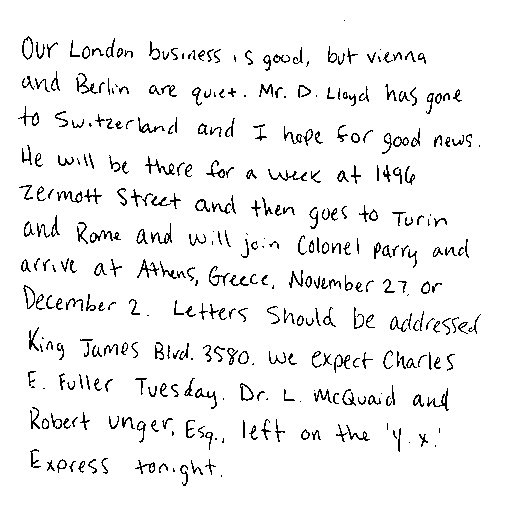 Our London business is good, but vienna
and Berlin are quiet. Mr. D. Lloyd has gone
to Switzerland and I hope for good news.
He will be there for a week at 1496
Zermott Street and then goes to Turin
and Rome and will join Colonel Parry and
arrive at Athens, Greece, November 27 or
December 2. Letters Should be addressed
King James Blvd. 3580. We expect Charles
E. Fuller Tuesday. Dr. L. McQuaid and
Robert Unger, Esq., left on the 'Y.X.'
Express tonight.